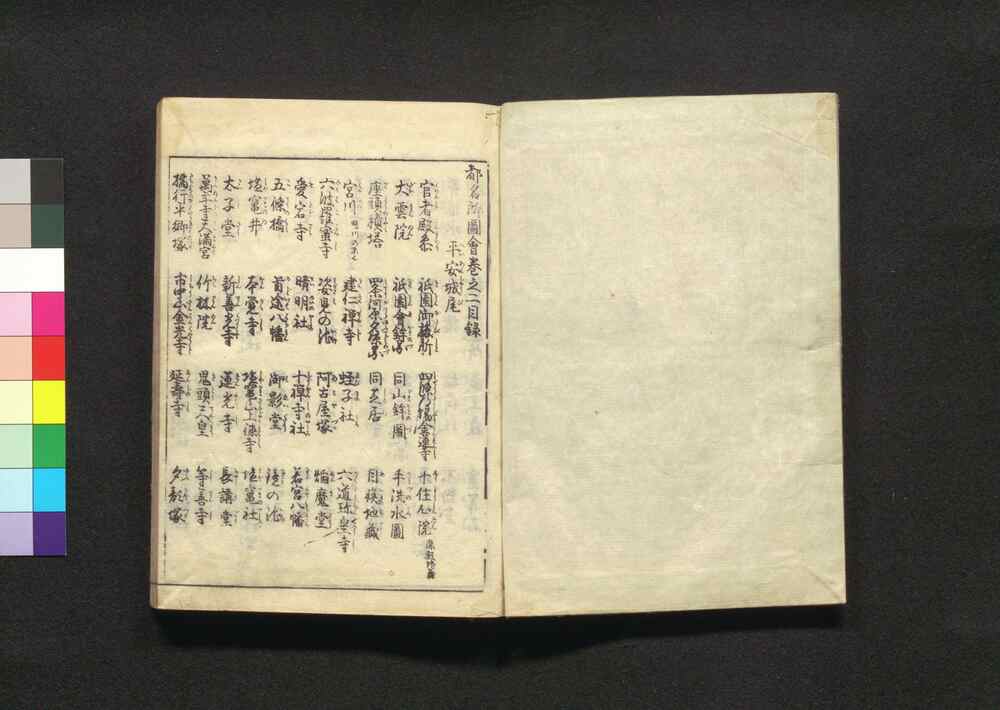 都名所圖會巻之二目録
平安城尾
官者殿社 祇園御旅所 四條道場金蓮寺 十住心院
大雲院 祇園會鉾 同山鉾圖 手洗水圖
座頭積塔 四条河原夕涼 同芝居 目疾地藏
宮川 建仁禅寺 蛭子社 六道珍皇寺
六波羅蜜寺 姿見の池 阿古屋塚 焔魔堂
愛宕寺 晴明社 十禅寺社 若宮八幡
五條橋 首途八幡 御影堂 鏡の池
塩竃井 本覺寺 塩竃山上徳寺 塩竃社
太子堂 新善光寺 蓮光寺 長講堂
萬年寺天満宮 竹林院 鬼頭天皇 等善寺
橘行平御塚 市中山金光寺 延壽寺 夕顔塚